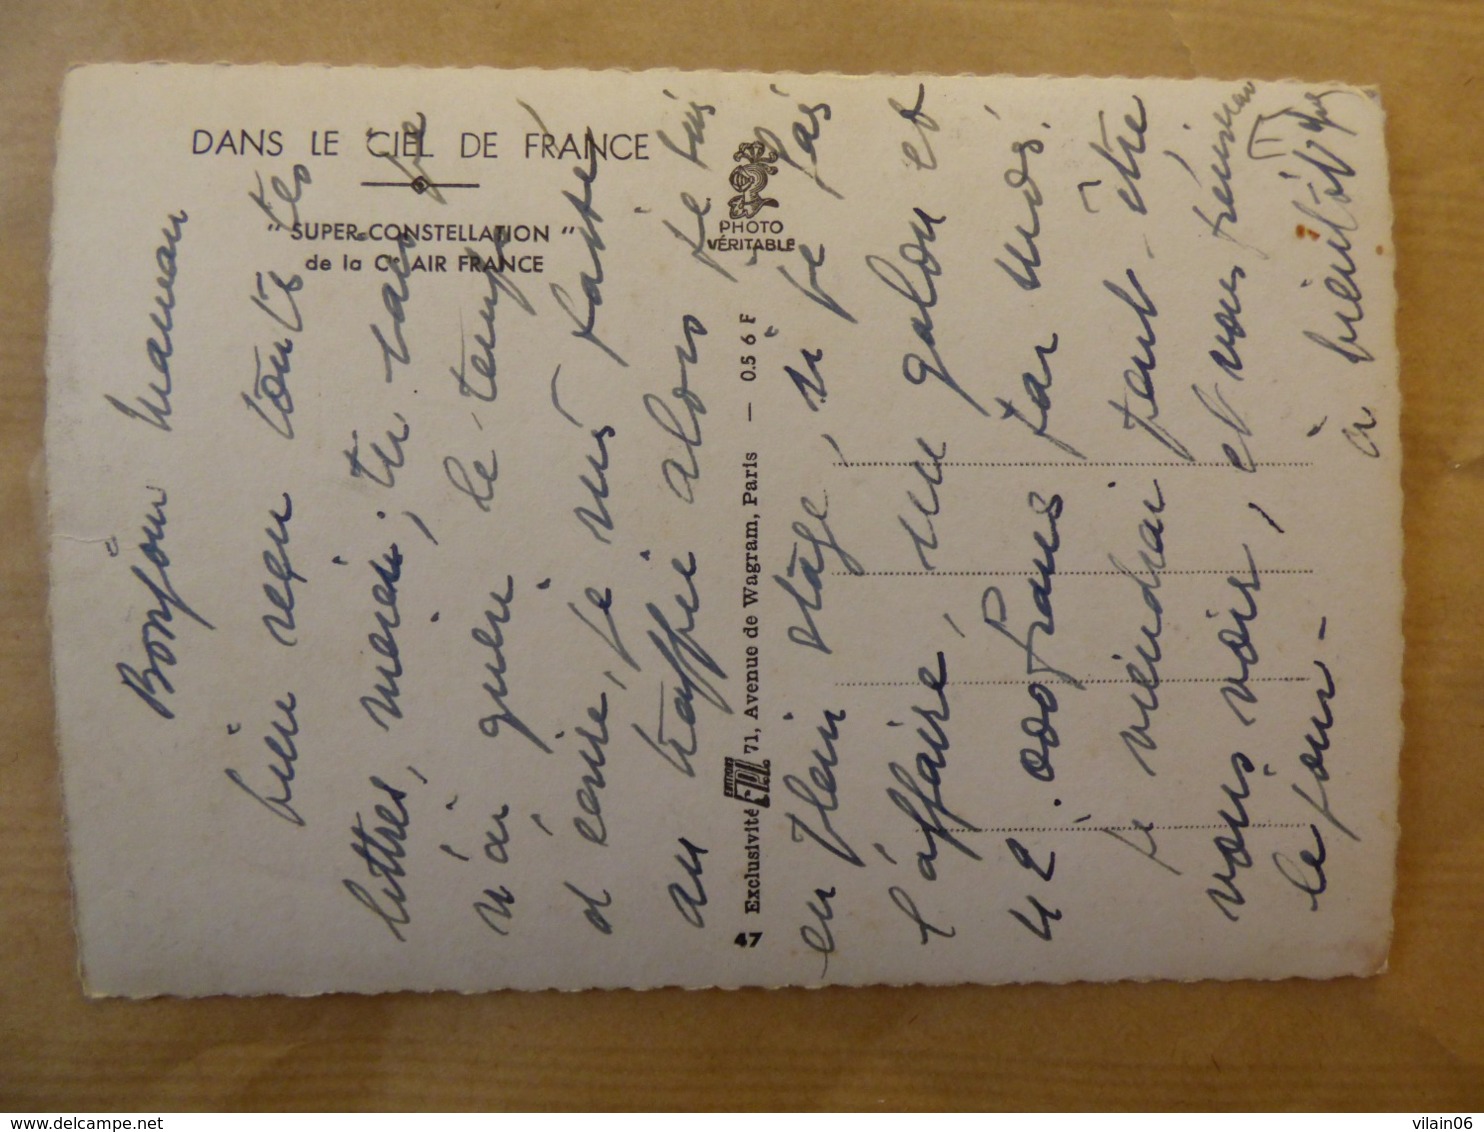 DANS LE CIEL DE FRANCE
" SUPER-CONSTELLATION "
de la Cie AIR FRANCE
PHOTO
VÉRITABLE
47 Exclusivité EDITIONS P.I. 71, Avenue de Wagram, Paris — 0.5 6 F
Bonjour Maman
bien reçu toutes tes
lettres, merci, tu sais je
n'ai guère le temps
d'ecrire, je suis
au traffic alors je suis
en plein stage, si je
l'affaire, un galon et
42.000 Francs par mois.
je viendrai peut-être
vous voir, et vous
le jour -
à bientôt
delcampe.net
vilain06